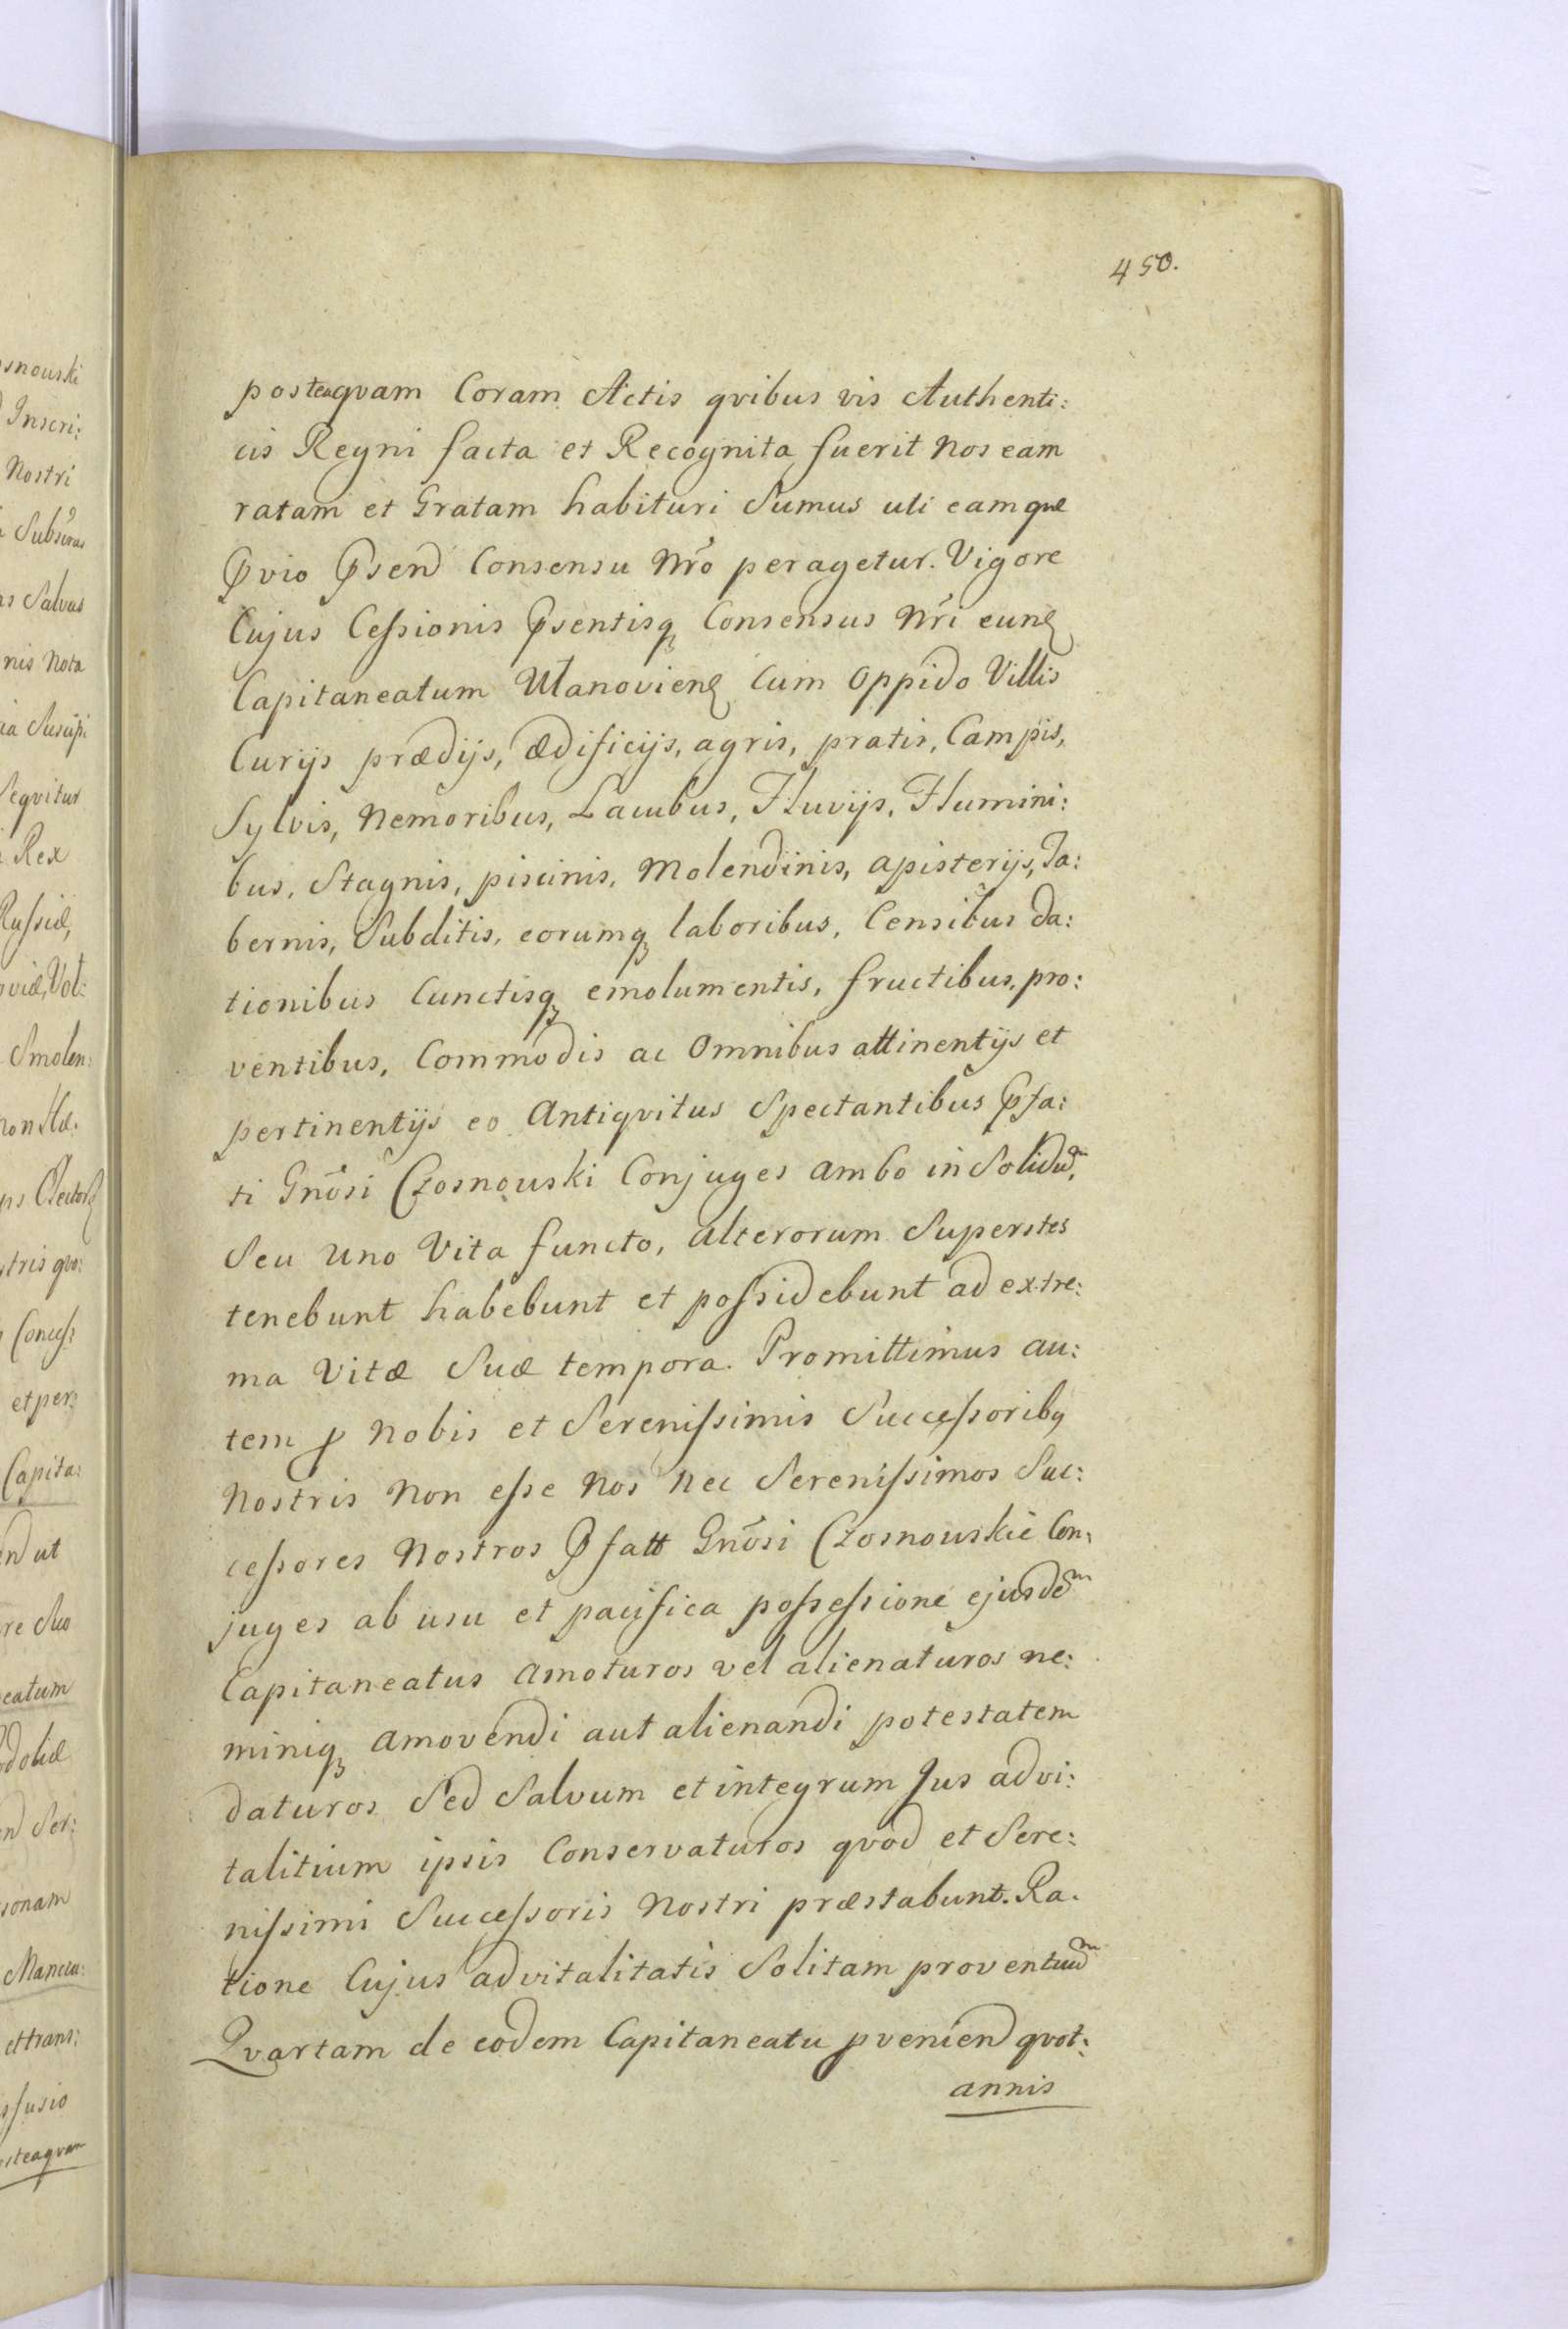 450.
posteaqvam Coram Actis qvibus vis Authenti:
cis Regni facta et Recognita fuerit nos eam
ratam et Gratam habituri Sumus uti eamque
Pvio Psend Consensu Nrõ peragetur. Vigore
Cujus Cessionis Psentisq Consensus Nrĩ eund
Capitaneatum Ułanoviens Cum Oppido Villis
Curijs prædijs, ædificijs, agris, pratis, Campis,
Sylvis, Nemoribus, Lacubus, Fluvijs, Flumini:
bus, Stagnis, piscinis, Molendinis, apisterijs, Ta:
bernis, Subditis, eorumq laboribus, Censibus da:
tionibus Cunctisq emolumentis, fructibus, pro:
ventibus, Commodis ac Omnibus attinentijs et
pertinentijs eo Antiqvitus Spectantibus Pfa:
ti Gnõsi Czosnowski Conjuges ambo in Solidum,
Seu uno Vita functo, alterorum Superstes
tenebunt habebunt et possidebunt ad extre:
ma Vitæ Suæ tempora. Promittimus au:
tem p Nobis et Serenissimis Successoribq
Nostris Non esse Nos Nec Serenissimos Suc:
cessores Nostros Pfatt Gnõsi Czosnowskie Con:
juges ab usu et pacifica possessione ejusdem
Capitaneatus amoturos vel alienaturos ne:
miniq amovendi aut alienandi potestatem
daturos Sed Salvum et integrum Jus advi:
talitium ipsis Conservaturos qvod et Sere:
nissimi Successoris Nostri præstabunt. Ra.
tione Cujus advitalitatis Solitam proventuum
Qvartam de eodem Capitaneatu pveniend qvot:
annis